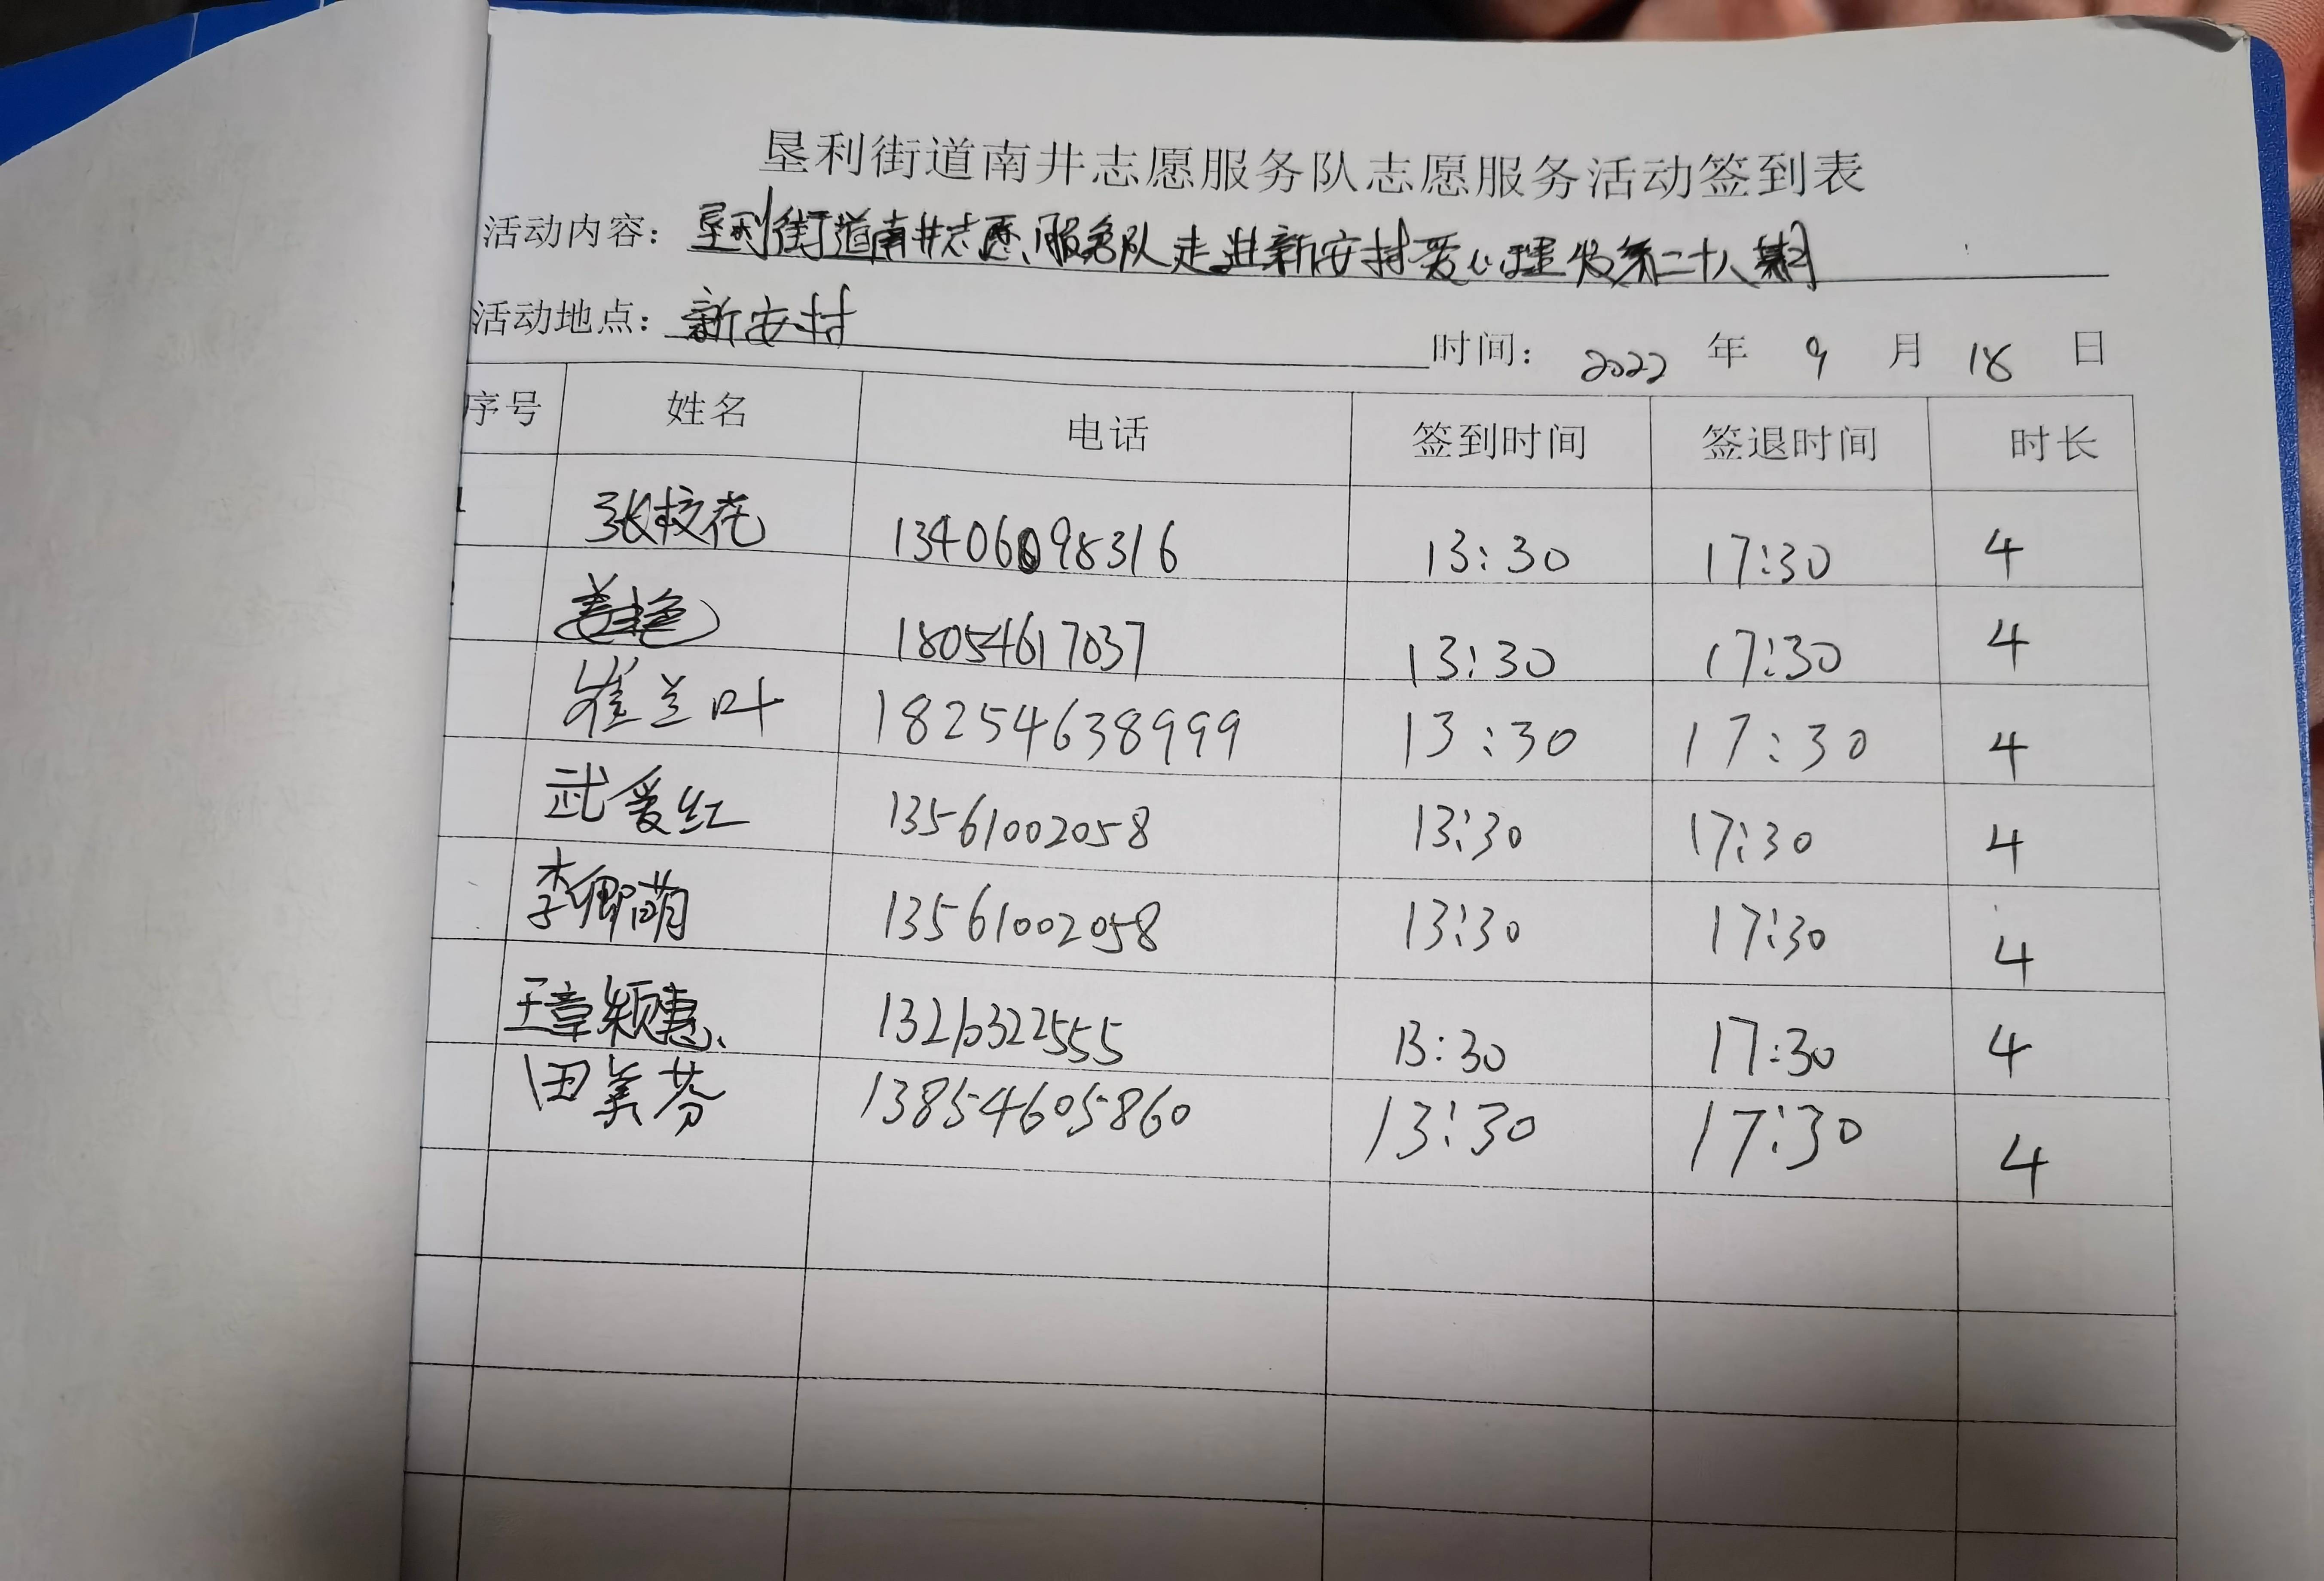 垦利街道南井志愿服务队志愿服务活动签到表
活动内容：垦利街道南井志愿服务队走进新安村爱心理发第二十八期
活动地点：新安村 时间：2022 年 9 月 18 日
序号 姓名 电话 签到时间 签退时间 时长
1 张校花 13406098316 13:30 17:30 4
姜艳 18054617037 13:30 17:30 4
崔兰叶 18254638999 13:30 17:30 4
武爱红 13561002058 13:30 17:30 4
李卿萌 13561002058 13:30 17:30 4
王章颖惠 13:30 17:30 4
田美芬 13854605860 13:30 17:30 4